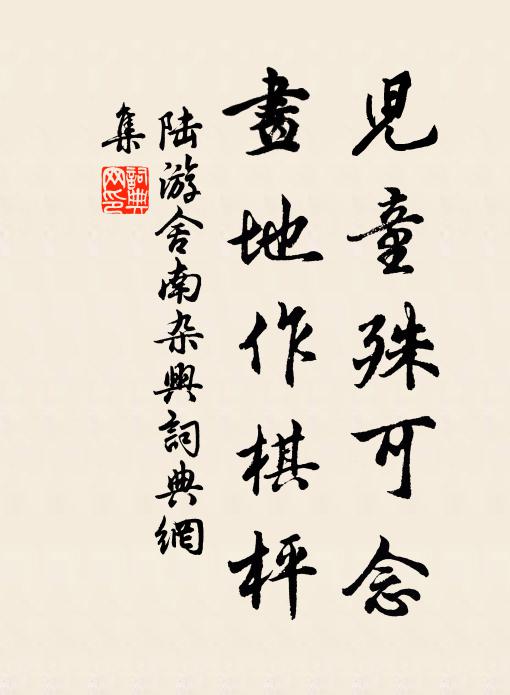 兒童殊可念
畫地作棋枰
陆游舍南杂興詞典網
集
詞典
网印